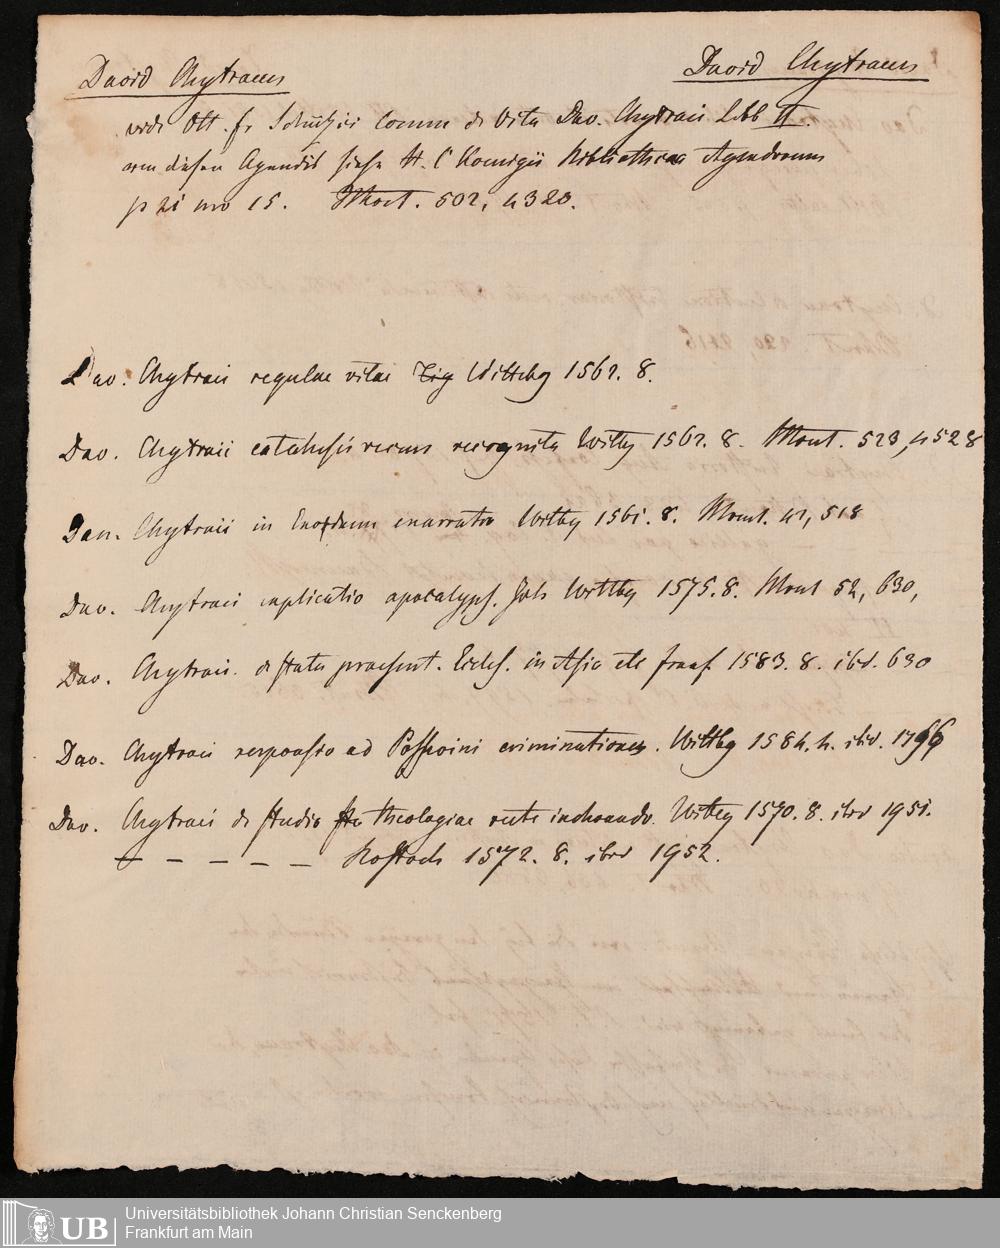 David Chytraeus David Chytraeus
vide Ott. fr Schützii Comm de Vita Dav. Chytraei Libb II.
von diesen Agendis siehe H. C Koenigii Bibliotheca Agendorum
p 21 nro 15. Msct. 502, 4320.
Dav. Chytraei regulae vitae Lig Wittebg 1562. 8.
Dav. Chytraei catechesis recens recognita Wittbg 1562. 8. Mscut. 523, 4528
Dav. Chytraei in Exodum enarratio Wittbg 1561. 8. Mscut. 42, 518
Dav. Chytraei explicatio apocalyps. Joh Wittbg 1575. 8. Mscut 52, 630,
Dav. Chytraei. de statu praesent. Eccles. in Asia etc franf 1583. 8. ibd. 630
Dav. Chytraei responsio ad Possevini criminationes. Wittbg 1584. 4. ibd. 1766
Dav. Chytraei de studio theologiae recte inchoando. Witbg 1570. 8. ibid 1951.
— — — — — Rostoch 1572. 8. ibid 1952.
Universitätsbibliothek Johann Christian Senckenberg
UB Frankfurt am Main